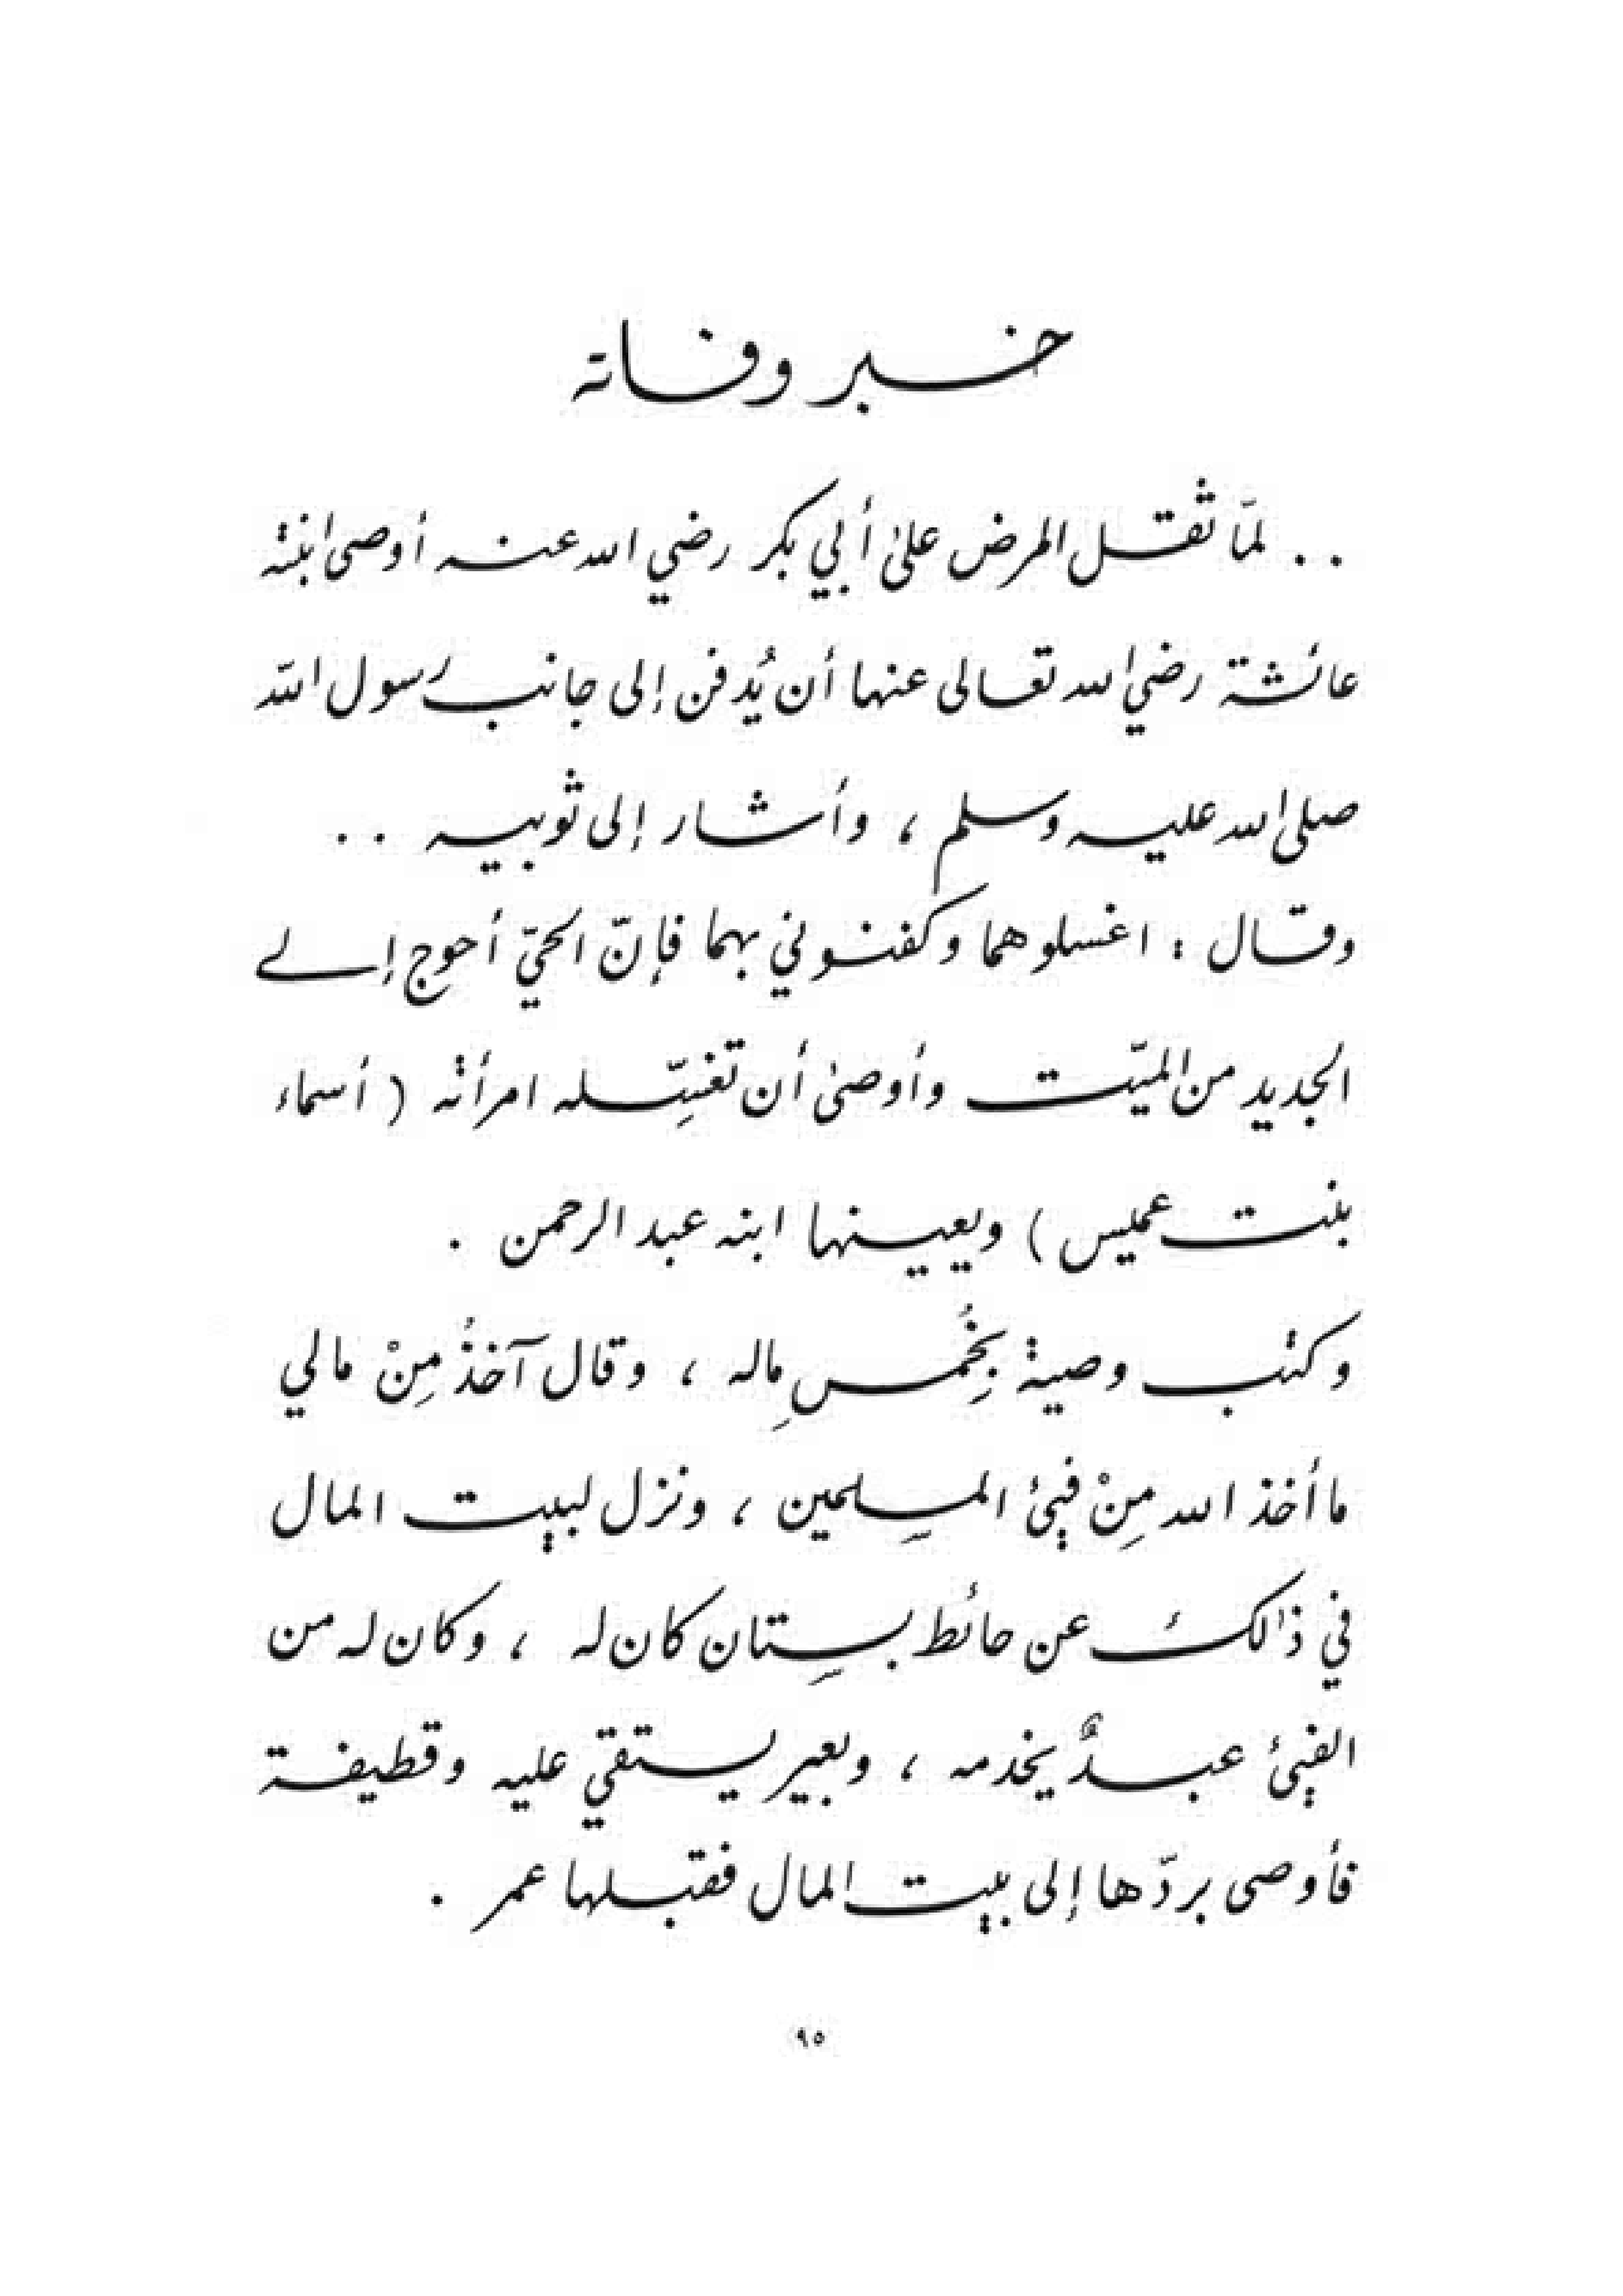 خبر وفاته
.. لمّا ثقل المرض علىٰ أبي بكر رضي الله عنه أوصى ابنته
عائشة رضي الله تعالى عنها أن يُدفن إلى جانب رسول الله
صلى الله عليه وسلم ، وأشار إلى ثوبيه ..
وقال : اغسلوهما وكفنوني بهما فإنّ الحيّ أحوج إلى
الجديد من الميّت وأوصىٰ أن تغسِّله امرأته ( أسماء
بنت عميس ) ويعينها ابنه عبد الرحمن .
وكتب وصية بِخُمسِ ماله ، وقال آخذُ مِنْ مالي
ما أخذ الله مِنْ فيئ المسلمين ، ونزل لبيت المال
في ذٰلك عن حائط بستان كان له ، وكان له من
الفيئ عبدٌ يخدمه ، وبعير يستقي عليه وقطيفة
فأوصى بردّها إلى بيت المال فقبلها عمر .
٩٥